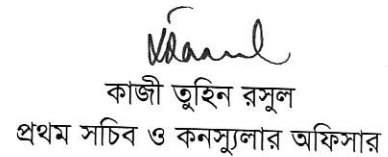 কাজী তুহিন রসুল
প্রথম সচিব ও কনস্যুলার অফিসার